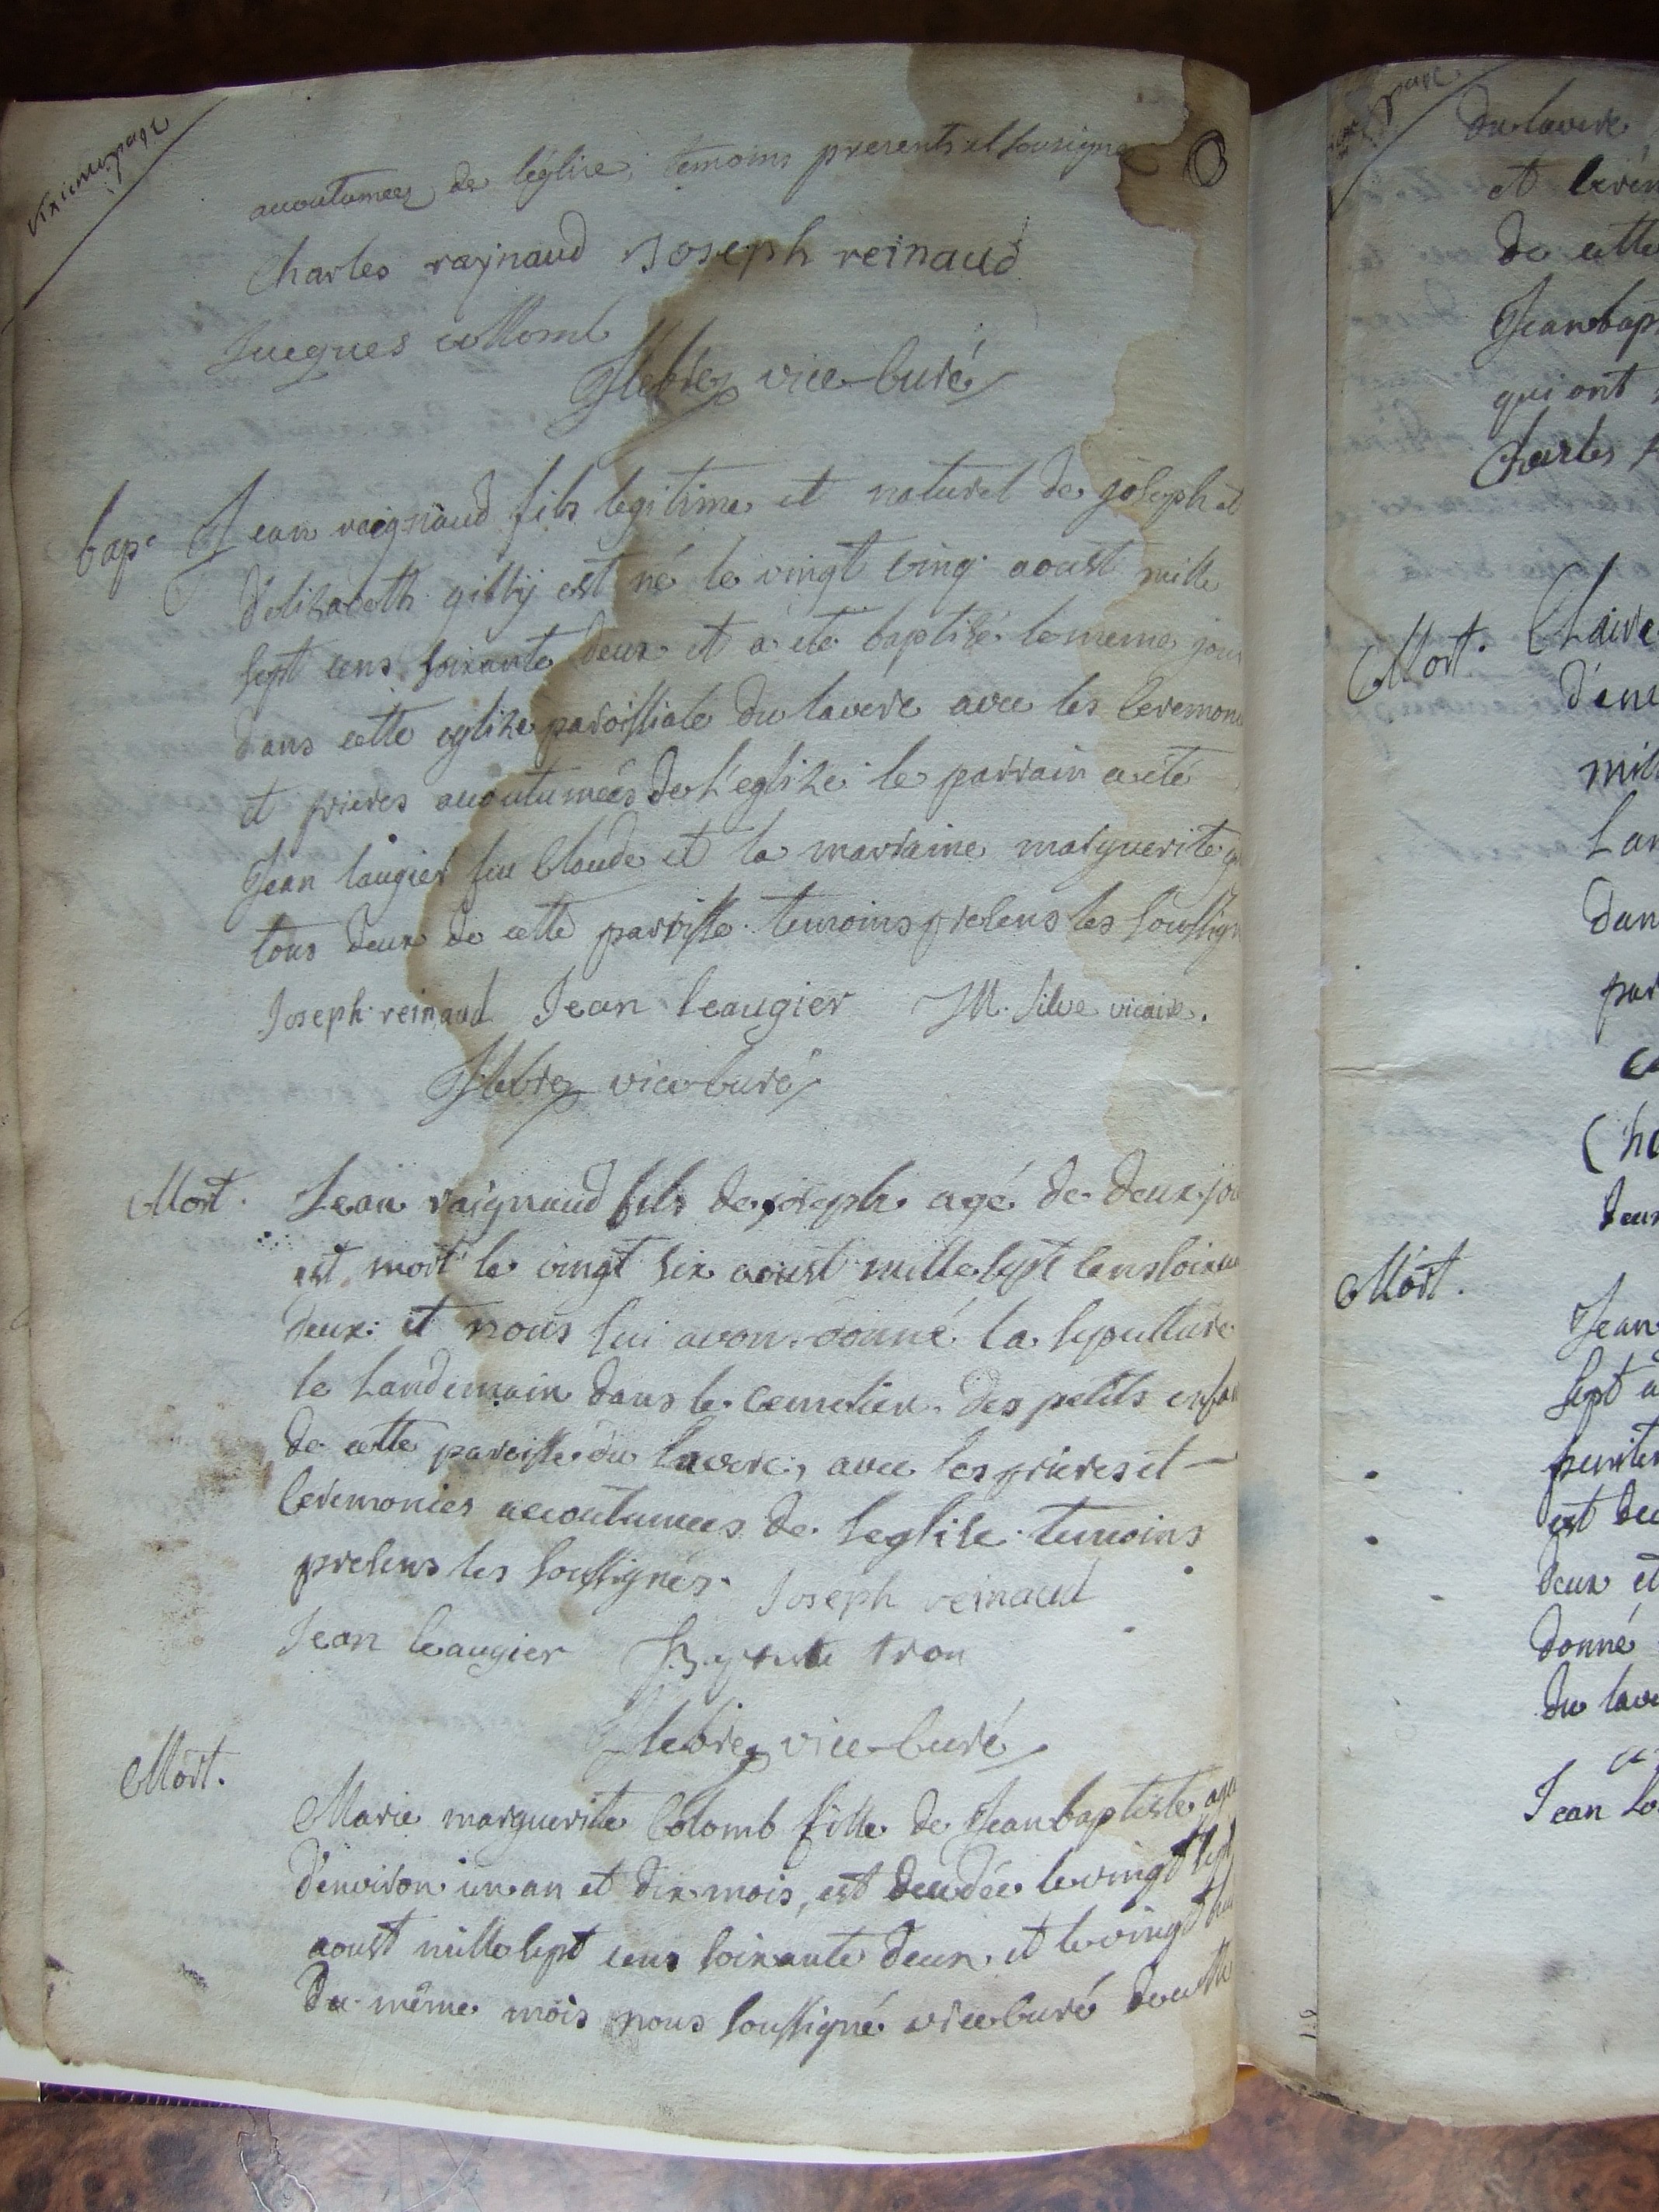 sixieme page
accoutumees de léglise, temoins presents et soussigne
Charles raynaud Joseph reinaud
Jacques collomb
vice-Curé
bap.e Jean raignaud fils legitime et naturel de joseph et
d'elizabeth gilly est né le vingt cinq aoust mille
sept cens soixante deux et a été baptisé le meme jour
dans cette eglize paroissiale du laverc avec les Ceremoni
et prieres accoutumées de l'eglize le parrain a été
Jean laugier feu Claude et la marraine marguerite
tous deux de cette paroisse temoins presens les soussign
Joseph reinaud Jean leaugier M. silve vicaire.
vice-curé
Mort. Jean raignaud fils de joseph agé de deux jou
est mort le vingt six aoust mille sept cens soixan
deux: et nous lui avons donné la sepulture
le Landemain dans le cemetiere des petits enfan
de cette paroisse du laverc, avec les prieres et —
Ceremonies accoutumees de leglise temoins
presens les soussignés. Joseph reinaud
Jean leaugier tron
vice-Curé
Mort.
Marie marguerite Colomb fille de Jean baptiste agé
d'environ un an et dix mois, est decedée le vingt sept
aoust mille sept cens soixante deux, et le vingt hui
du même mois nous soussigné vice curé de cette
page
du laverc
et
de cette
Jean bap
qui ont
Charles
Mort. Claire
d'env
mill
Lan
dan
par
deux
Mort.
Jean
sept
est dec
deux et
donné
du lave
Jean